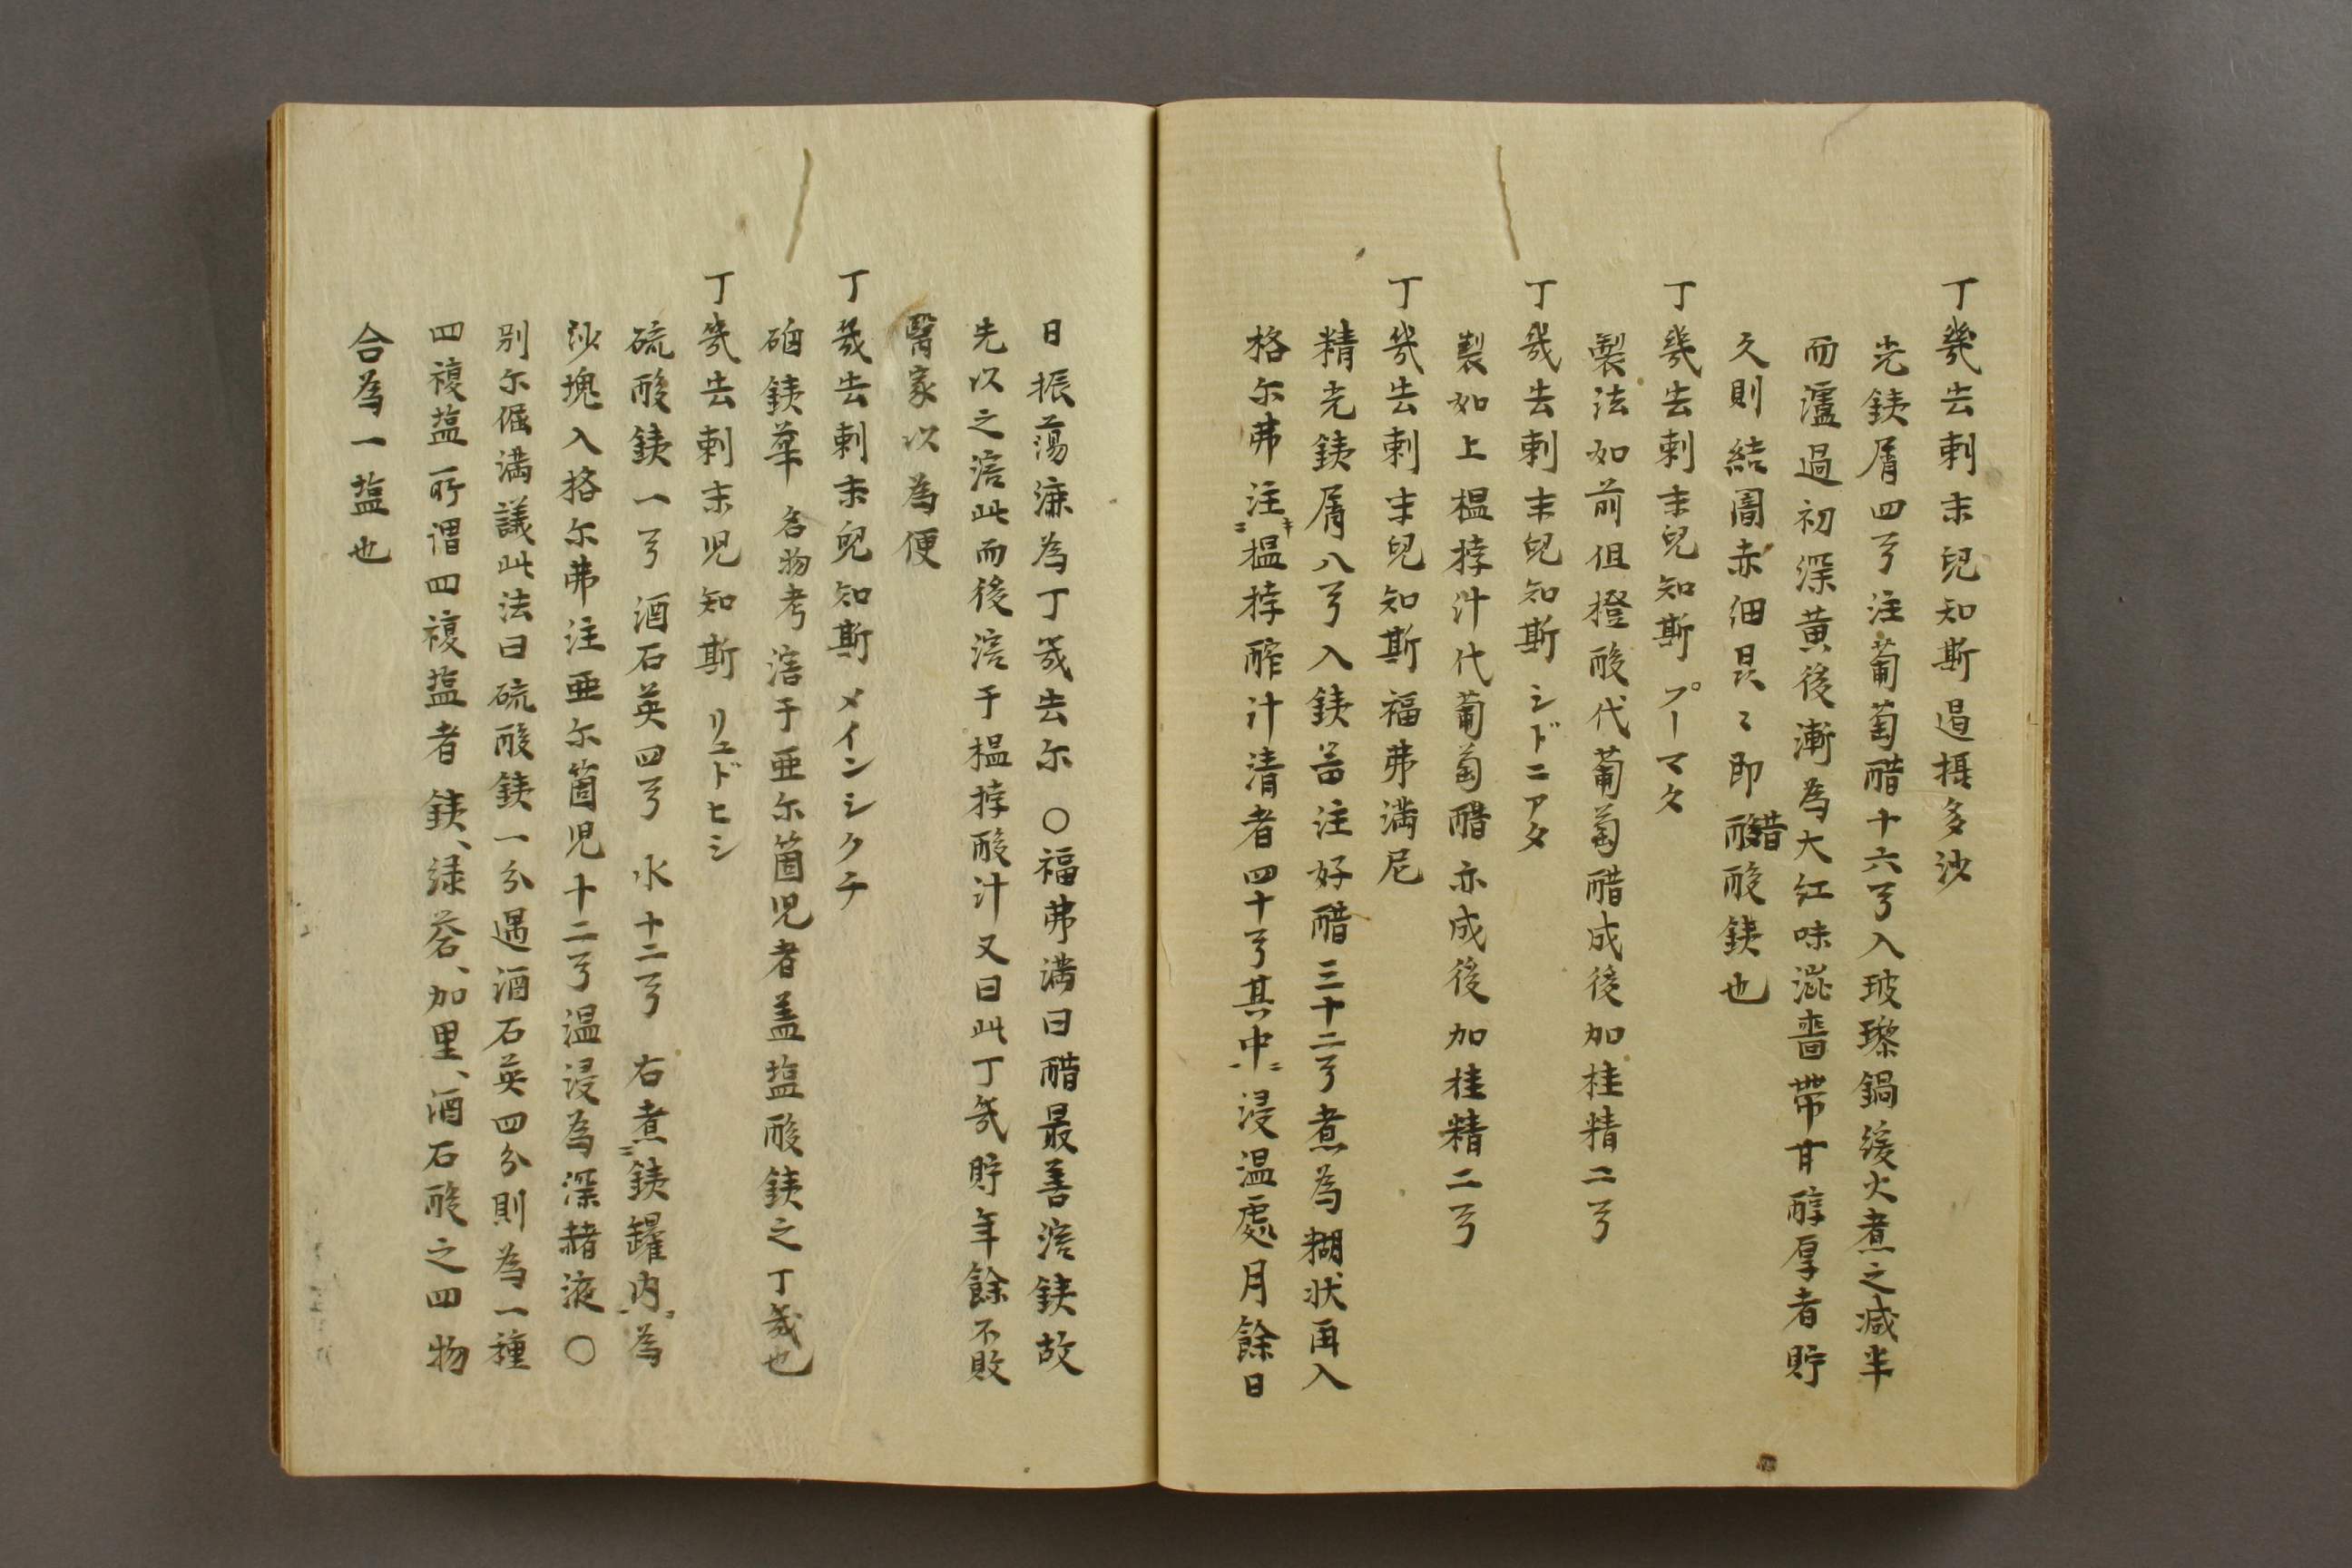 丁幾去剌末児知斯過摂多沙
光鉄屑四亐注葡萄醋十六亐入玻瓈鍋緩火煮之减半
而濾過初深黄後漸為大红味澁嗇帯甘醇厚者貯
久則結闇赤細昆〻即醋酸鉄也
丁幾去剌末児知斯プーマタ
製法如前但橙酸代葡萄醋成後加桂精二亐
丁幾去剌末児知斯シドニアタ
製如上榲桲汁代葡萄醋亦成後加桂精二亐
丁幾去剌末児知斯福弗満尼
精光鉄屑八亐入鉄臼注好醋三十二亐煮為糊状再入
格尔弗注榲桲酢汁清者四十亐其中浸温處月餘日
日振蕩漉為丁幾去尔〇福弗満曰醋最善溶鉄故
先以之溶此而後溶于榲桲酸汁又曰此丁幾貯年餘不敗
醫家以為便
丁幾去剌末児知斯メインシクチ
硇鉄華名物考溶于亜尔箇児者盖塩酸鉄之丁幾也
丁幾去剌末児知斯リュドヒシ
硫酸鉄一亐酒石英四亐水十二亐右煮鉄鑵内為
沙塊入格尔弗注亜尔箇児十二亐温浸為深赭液〇
别尔倔満議此法曰硫酸鉄一分遇酒石英四分則為一種
四複塩所謂四複塩者鉄、緑礬、加里、酒石酸之四物
合為一塩也